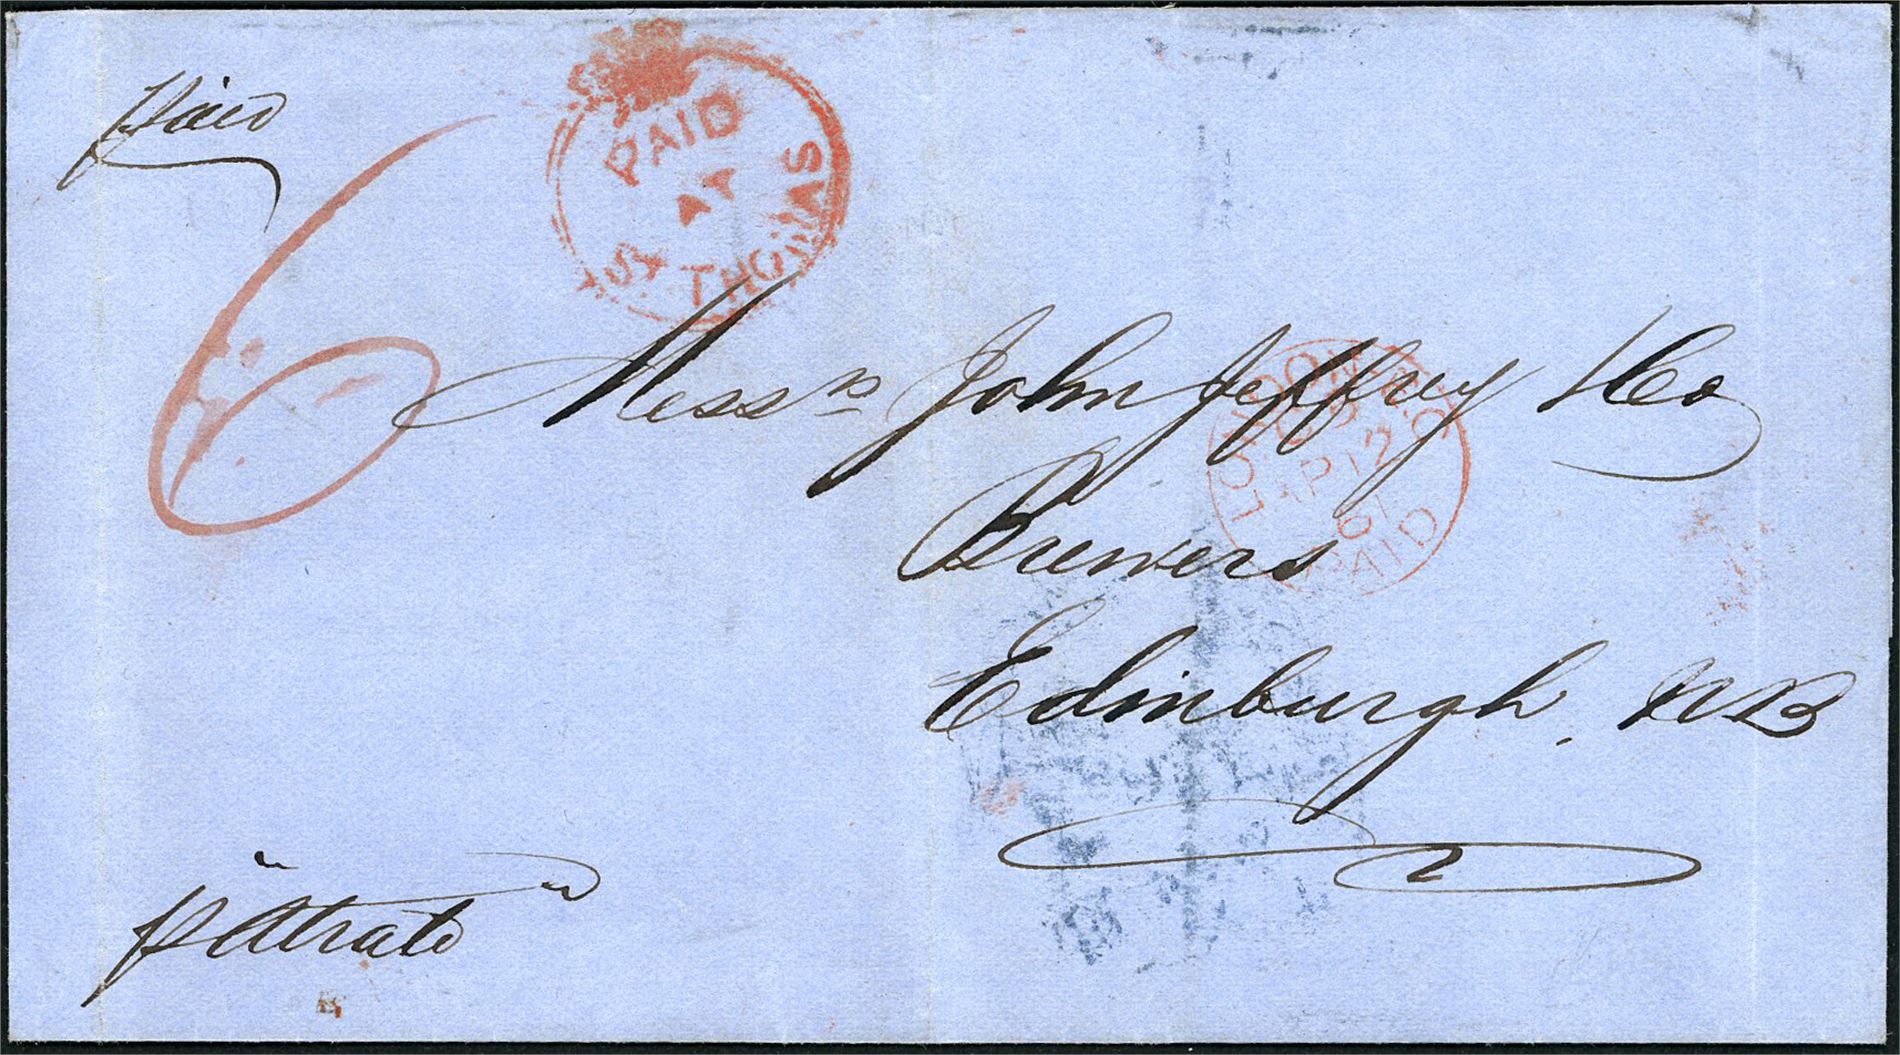 Paid
PAID
AT
ST THOMAS
6
Messrs John Jeffrey & Co
LONDON E.C
AP 12
61
PAID
Brewers
Edinburgh. NB
p "Atrato"